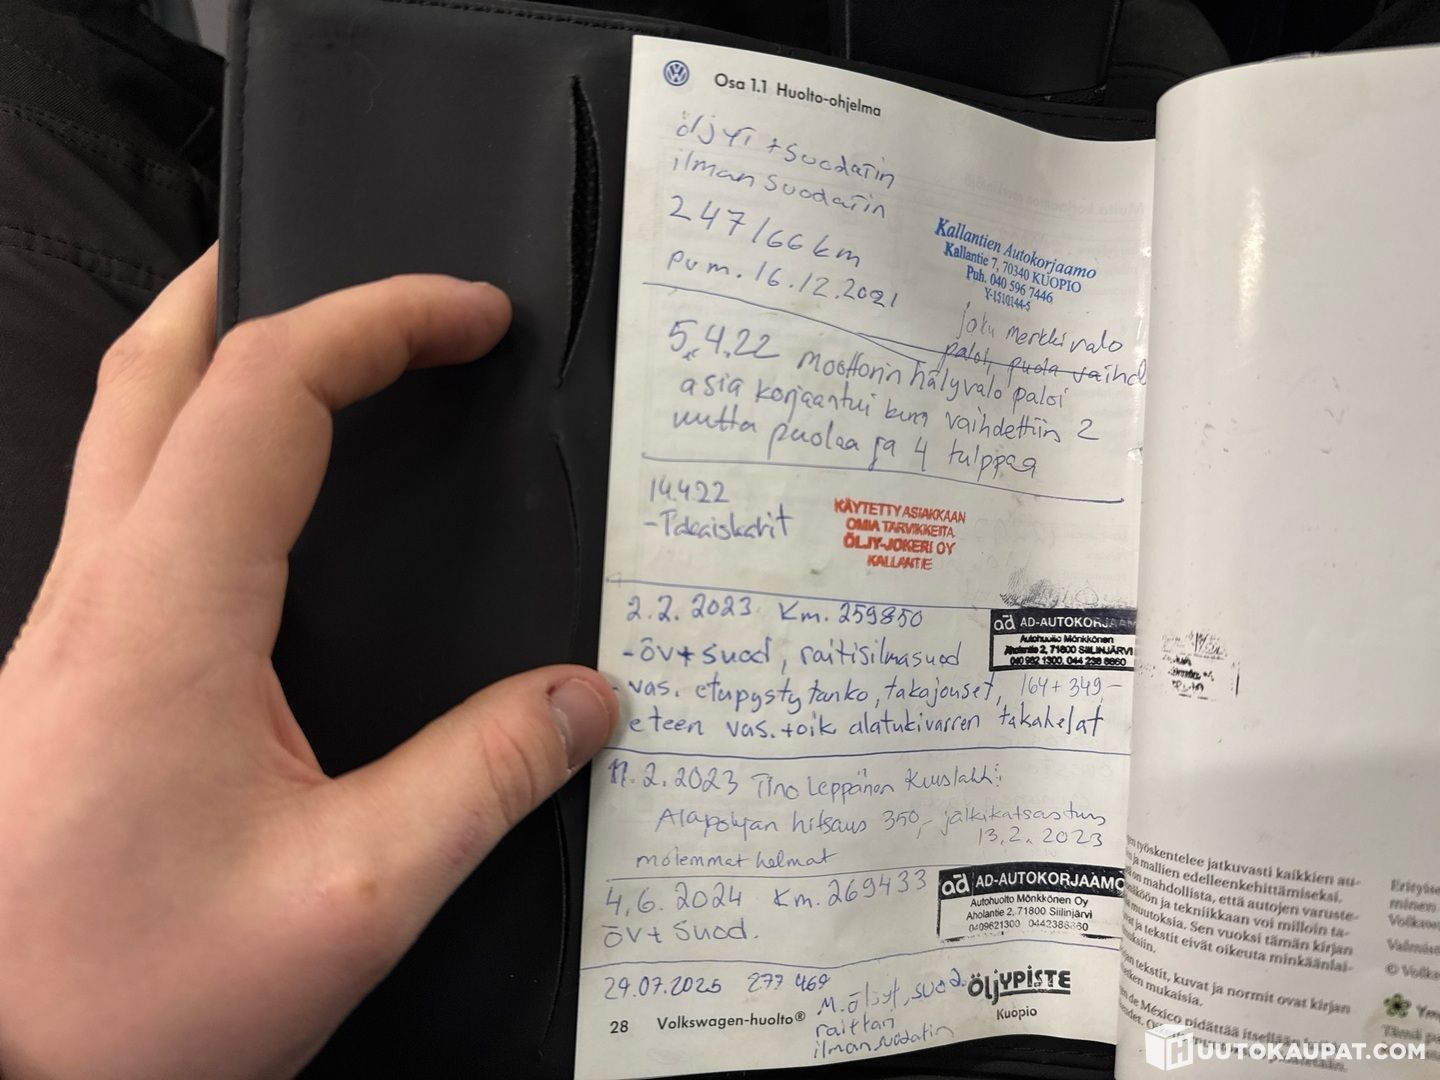 Osa 1.1 Huolto-ohjelma
öljyt + suodatin
ilman suodatin
247166 km
pvm. 16.12.2021
Kallantien Autokorjaamo
Kallantie 7, 70340 KUOPIO
Puh. 040 596 7446
Y-1510144-5
joku merkkivalo
paloi, puola vaihd
5.4.22 moottorin hälyvalo paloi
asia korjaantui kun vaihdettiin 2
uutta puolaa ja 4 tulppaa
14.4.22
- Takaiskarit
KÄYTETTY ASIAKKAAN
OMIA TARVIKKEITA
ÖLJY-JOKERI OY
KALLANTIE
2.2.2023 Km. 259850
- öv+ suod, raitisilmasuod
- vas. etupystytanko, takajouset, 164 + 349,-
eteen vas. + oik alatukivarren takahelat
AD-AUTOKORJAAM
Autohuolto Mönkkönen
Aholantie 2, 71800 SIILINJÄRVI
040 962 1300, 044 238 8860
11.2.2023 Tino Leppänen Kuuslahti
Alapohjan hitsaus 350,- jälkikatsastus
13.2.2023
molemmat helmat
4.6.2024 Km. 269433
öv+ suod.
AD-AUTOKORJAAMO
Autohuolto Mönkkönen Oy
Aholantie 2, 71800 Siilinjärvi
0409621300 0442388860
29.07.2025 277 469
M. öljyt, suod.
raittan
ilmansuodatin
ÖljYPISTE
Kuopio
28 Volkswagen-huolto®
työskentelee jatkuvasti kaikkien au-
ja mallien edelleenkehittämiseksi.
on mahdollista, että autojen varuste-
köön ja tekniikkaan voi milloin ta-
muutoksia. Sen vuoksi tämän kirjan
ja tekstit eivät oikeuta minkäänlai-
tekstit, kuvat ja normit ovat kirjan
mukaisia.
de México pidättää itsellään
Erityise
minen
Volkswa
Valmis
© Volks
HUUTOKAUPAT.COM